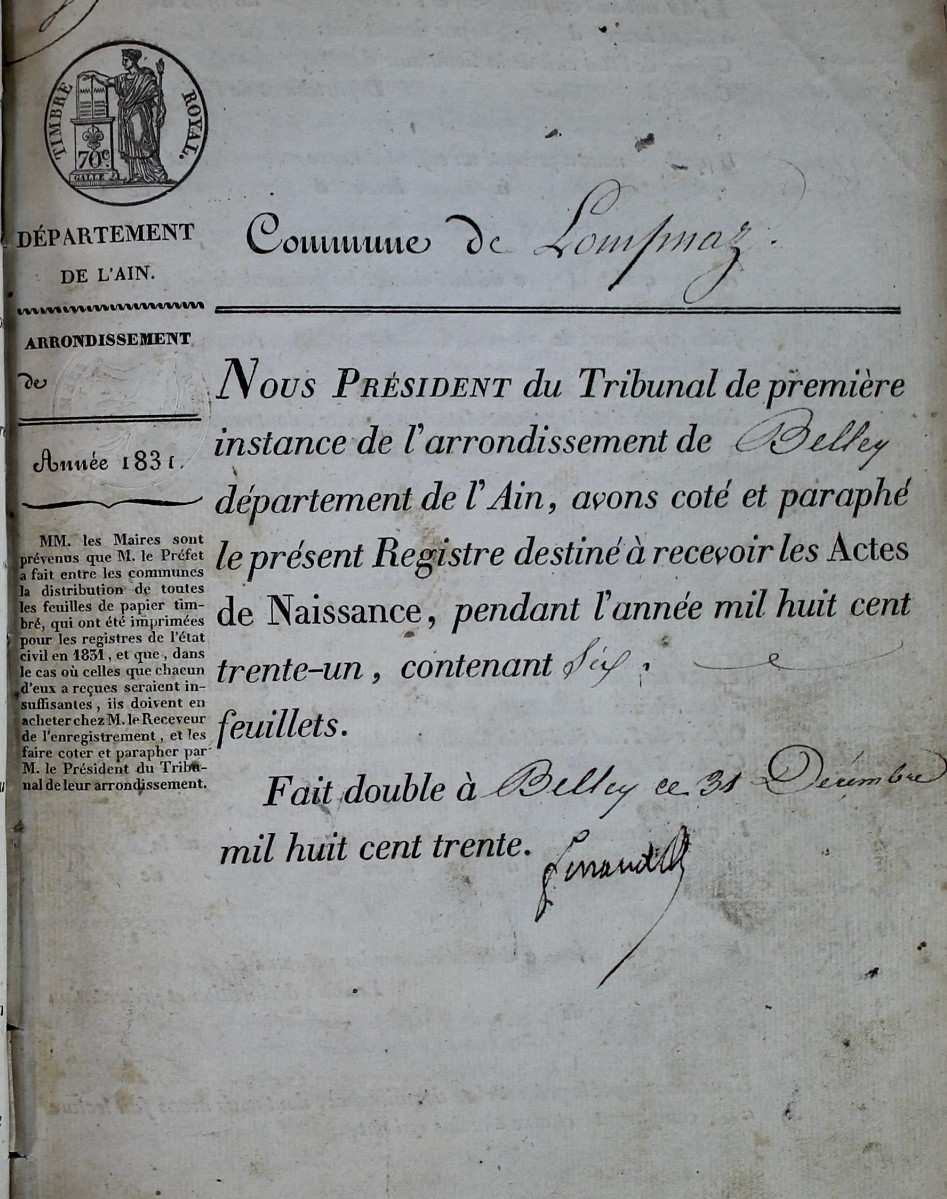 TIMBRE ROYAL.
70c.
GALLE
DÉPARTEMENT
DE L'AIN.
ARRONDISSEMENT
de
Année 1831.
MM. les Maires sont
prévenus que M. le Préfet
a fait entre les communes
la distribution de toutes
les feuilles de papier tim-
bré, qui ont été imprimées
pour les registres de l'état
civil en 1831, et que, dans
le cas où celles que chacun
d'eux a reçues seraient in-
suffisantes, ils doivent en
acheter chez M. le Receveur
de l'enregistrement, et les
faire coter et parapher par
M. le Président du Tribu-
nal de leur arrondissement.
Commune de Lompnaz.
NOUS PRÉSIDENT du Tribunal de première
instance de l'arrondissement de Belley
département de l'Ain, avons coté et paraphé
le présent Registre destiné à recevoir les Actes
de Naissance, pendant l'année mil huit cent
trente-un, contenant Six
feuillets.
Fait double à Belley ce 31 Décembre
mil huit cent trente.